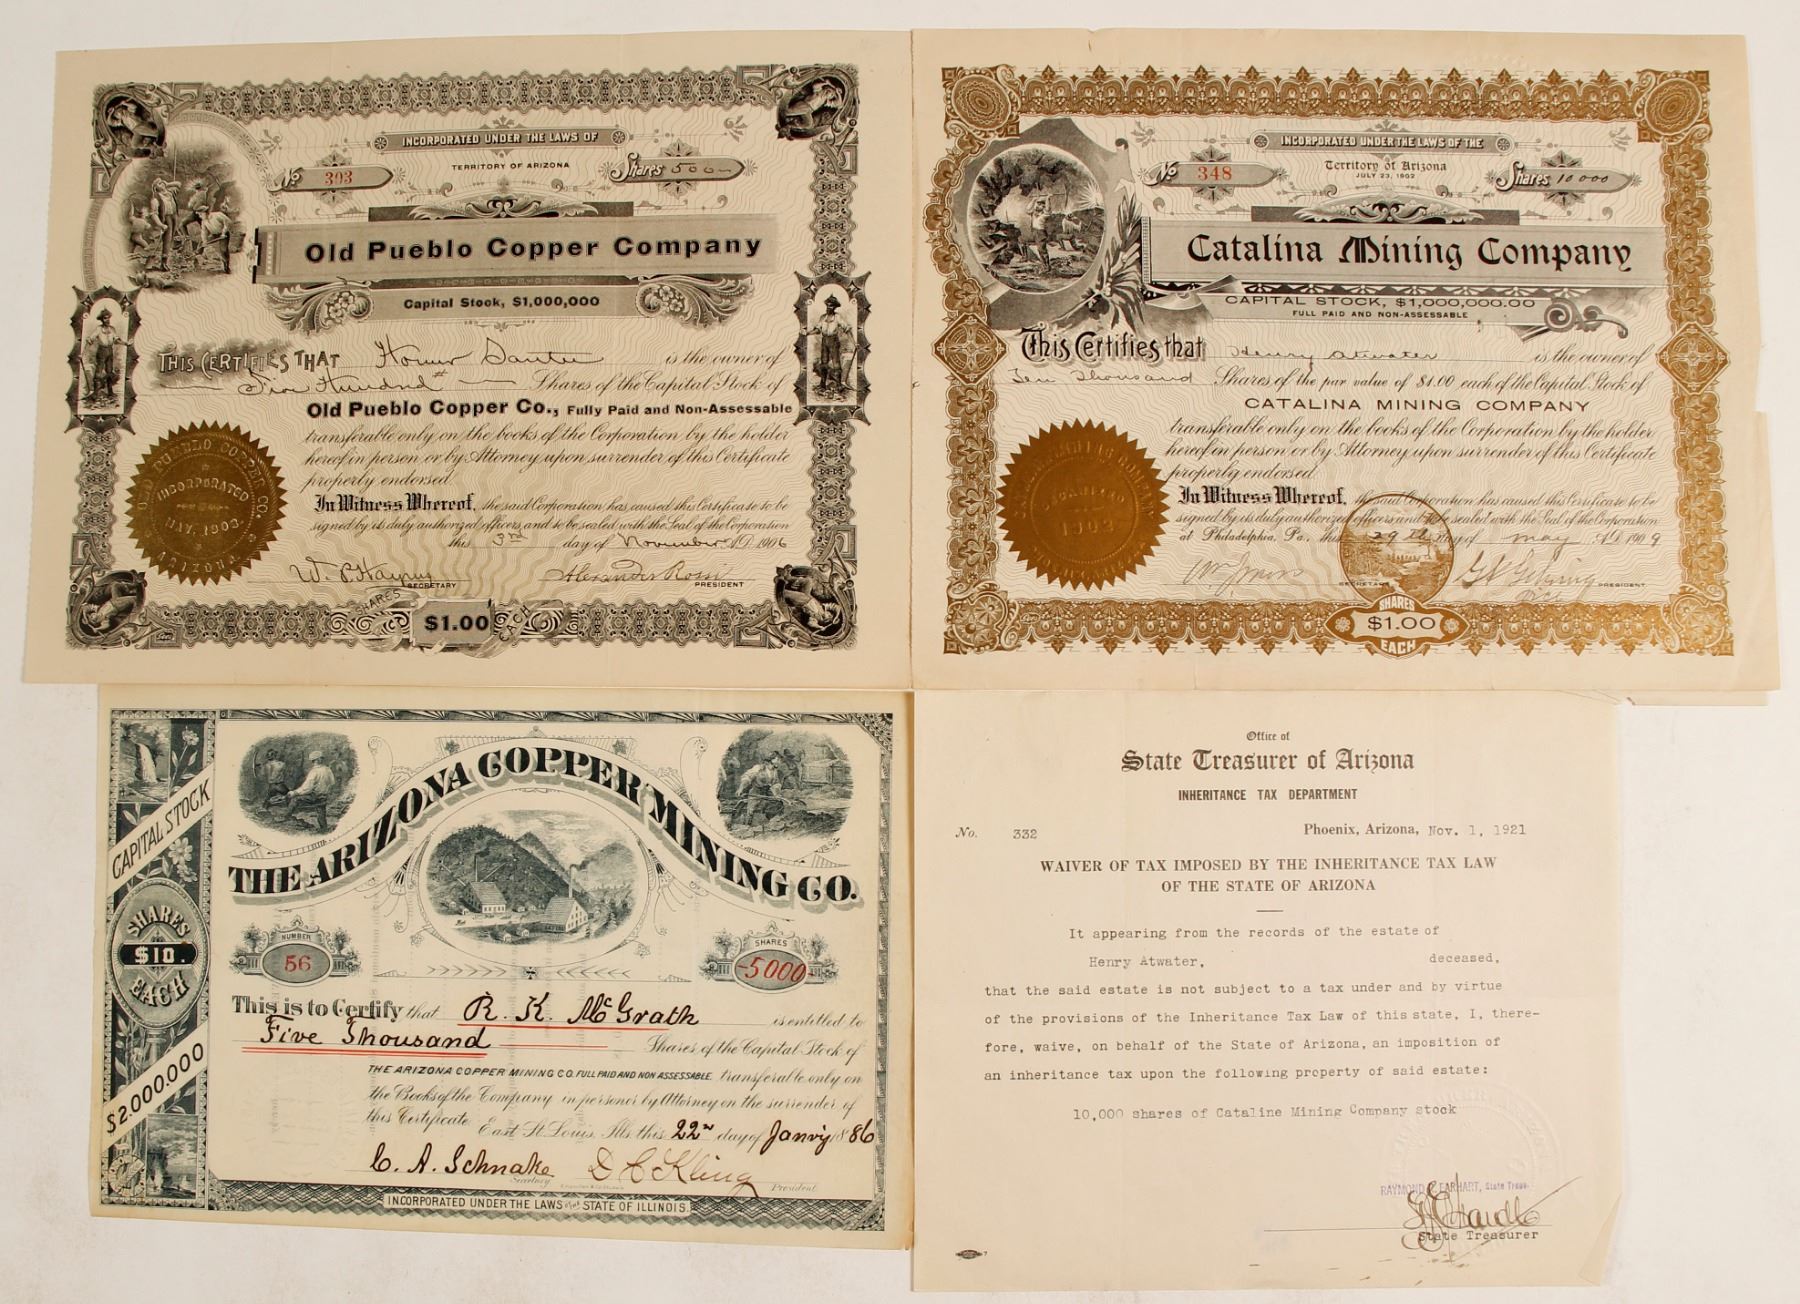 INCORPORATED UNDER THE LAWS OF
TERRITORY OF ARIZONA
No 393
Shares 500
Old Pueblo Copper Company
Capital Stock, $1,000,000
THIS CERTIFIES THAT Homer is the owner of
Five Hundred Shares of the Capital Stock of
Old Pueblo Copper Co., Fully Paid and Non-Assessable
transferable only on the books of the Corporation by the holder
hereof in person or by Attorney upon surrender of this Certificate
properly endorsed.
In Witness Whereof, the said Corporation has caused this Certificate to be
signed by its duly authorized officers and to be sealed with the Seal of the Corporation
this 3rd day of November A.D. 1906
Alexander Rossi
SECRETARY PRESIDENT
SHARES $1.00 EACH
OLD PUEBLO COPPER CO.
INCORPORATED
MAY, 1903.
ARIZONA.
INCORPORATED UNDER THE LAWS OF THE
Territory of Arizona
JULY 23, 1902
No 348
Shares 10000
Catalina Mining Company
CAPITAL STOCK, $1,000,000.00
FULL PAID AND NON-ASSESSABLE
This Certifies that Henry Atwater is the owner of
Ten Thousand Shares of the par value of $1.00 each of the Capital Stock of
CATALINA MINING COMPANY
transferable only on the books of the Corporation by the holder
hereof in person or by Attorney upon surrender of this Certificate
properly endorsed.
In Witness Whereof, the said Corporation has caused this Certificate to be
signed by its duly authorized officers and to be sealed with the Seal of the Corporation
at Philadelphia, Pa. this 29th day of May A.D. 1909
SECRETARY PRESIDENT
SHARES
$1.00
EACH
CAPITAL STOCK
SHARES
$10.
EACH
$2.000.000
THE ARIZONA COPPER MINING CO.
NUMBER
56
SHARES
-5000-
This is to Certify that R. K. McGrath is entitled to
Five Thousand Shares of the Capital Stock of
THE ARIZONA COPPER MINING CO. FULL PAID AND NON ASSESSABLE. transferable only on
the Books of the Company in person or by Attorney on the surrender of
this Certificate East St. Louis, Ills. this 22nd day of Jan'y 1886
C. A. Schnake D C Kling
Secretary President
INCORPORATED UNDER THE LAWS OF THE STATE OF ILLINOIS.
Office of
State Treasurer of Arizona
INHERITANCE TAX DEPARTMENT
No. 332 Phoenix, Arizona, Nov. 1, 1921
WAIVER OF TAX IMPOSED BY THE INHERITANCE TAX LAW
OF THE STATE OF ARIZONA
It appearing from the records of the estate of
Henry Atwater, deceased,
that the said estate is not subject to a tax under and by virtue
of the provisions of the Inheritance Tax Law of this state, I, there-
fore, waive, on behalf of the State of Arizona, an imposition of
an inheritance tax upon the following property of said estate:
10,000 shares of Cataline Mining Company stock
RAYMOND EARHART, State Treas.
State Treasurer